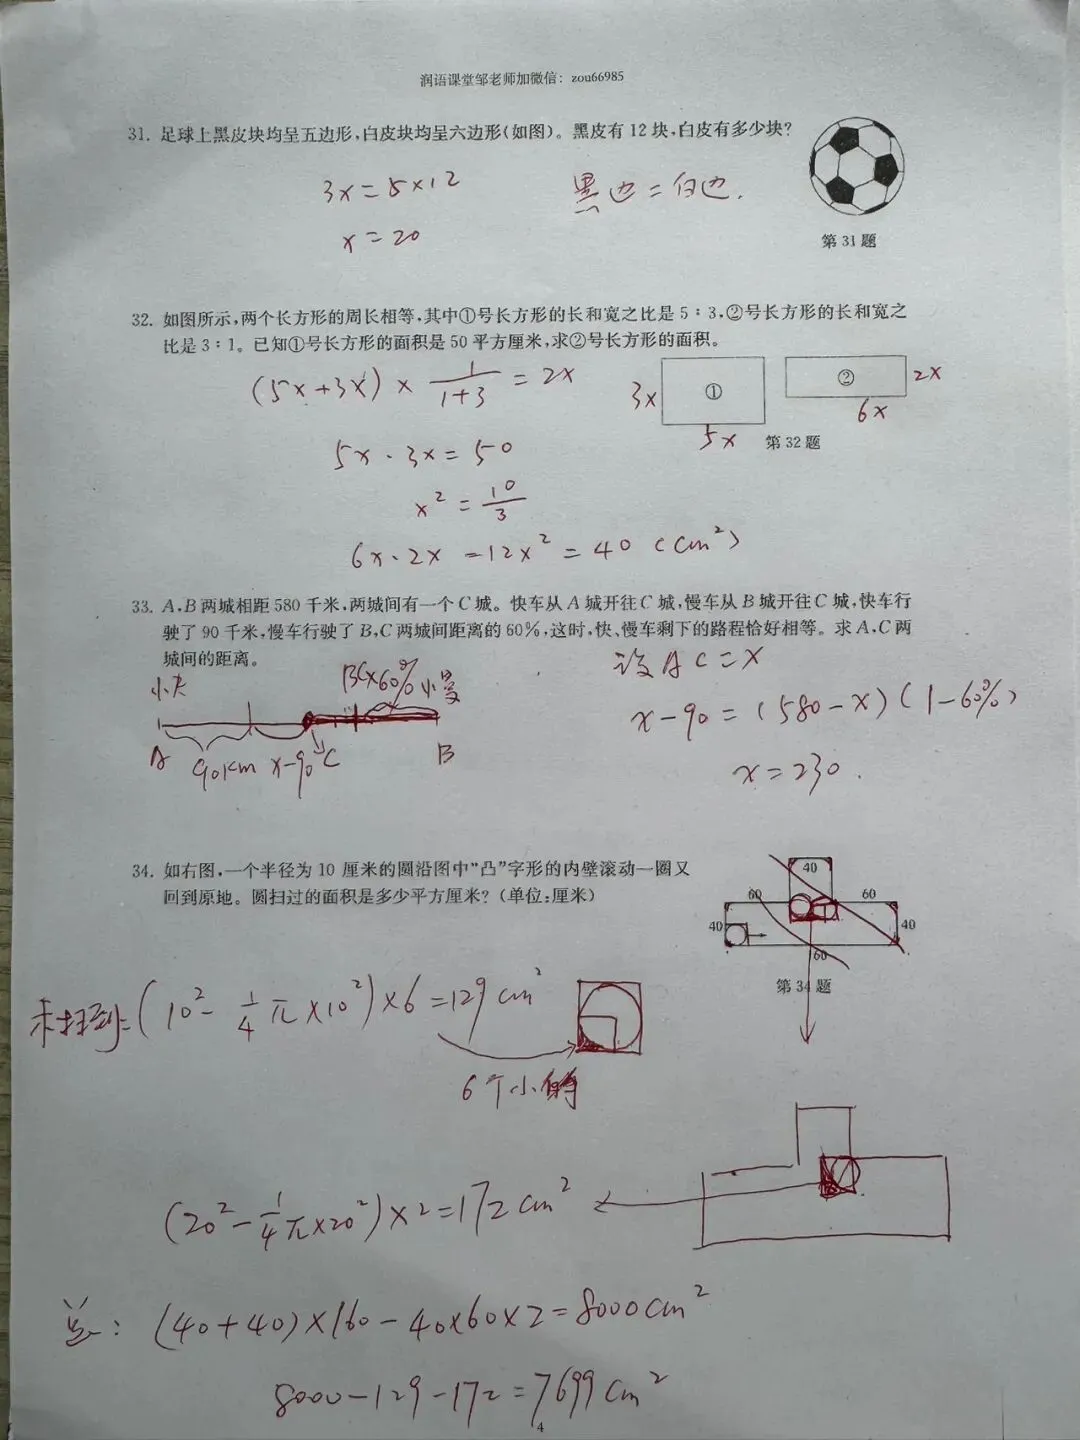 润语课堂邹老师加微信: zou66985
31. 足球上黑皮块均呈五边形,白皮块均呈六边形(如图)。黑皮有12块,白皮有多少块?
3x=5×12
黑边=白边.
x=20
第31题
32. 如图所示,两个长方形的周长相等,其中①号长方形的长和宽之比是5:3,②号长方形的长和宽之
比是3:1。已知①号长方形的面积是50平方厘米,求②号长方形的面积。
(5x+3x)×1/(1+3)=2x
3x
①
5x
②
2x
6x
第32题
5x·3x=50
x²=10/3
6x·2x=12x²=40(cm²)
33. A、B两城相距580千米,两城间有一个C城。快车从A城开往C城,慢车从B城开往C城,快车行
驶了90千米,慢车行驶了B,C两城间距离的60%,这时,快、慢车剩下的路程恰好相等。求A,C两
城间的距离。
设AC=x
BC×60%
小慢
A
90km
x-90
C
B
x-90=(580-x)(1-60%)
x=230.
34. 如右图,一个半径为10厘米的圆沿图中“凸”字形的内壁滚动一圈又
回到原地。圆扫过的面积是多少平方厘米?(单位:厘米)
40
60
60
40
40
160
第34题
未扫到:(10²-1/4π×10²)×6=129cm²
6个小角
(20²-1/4π×20²)×2=172cm²
总:(40+40)×160-40×60×2=8000cm²
8000-129-172=7699cm²
4